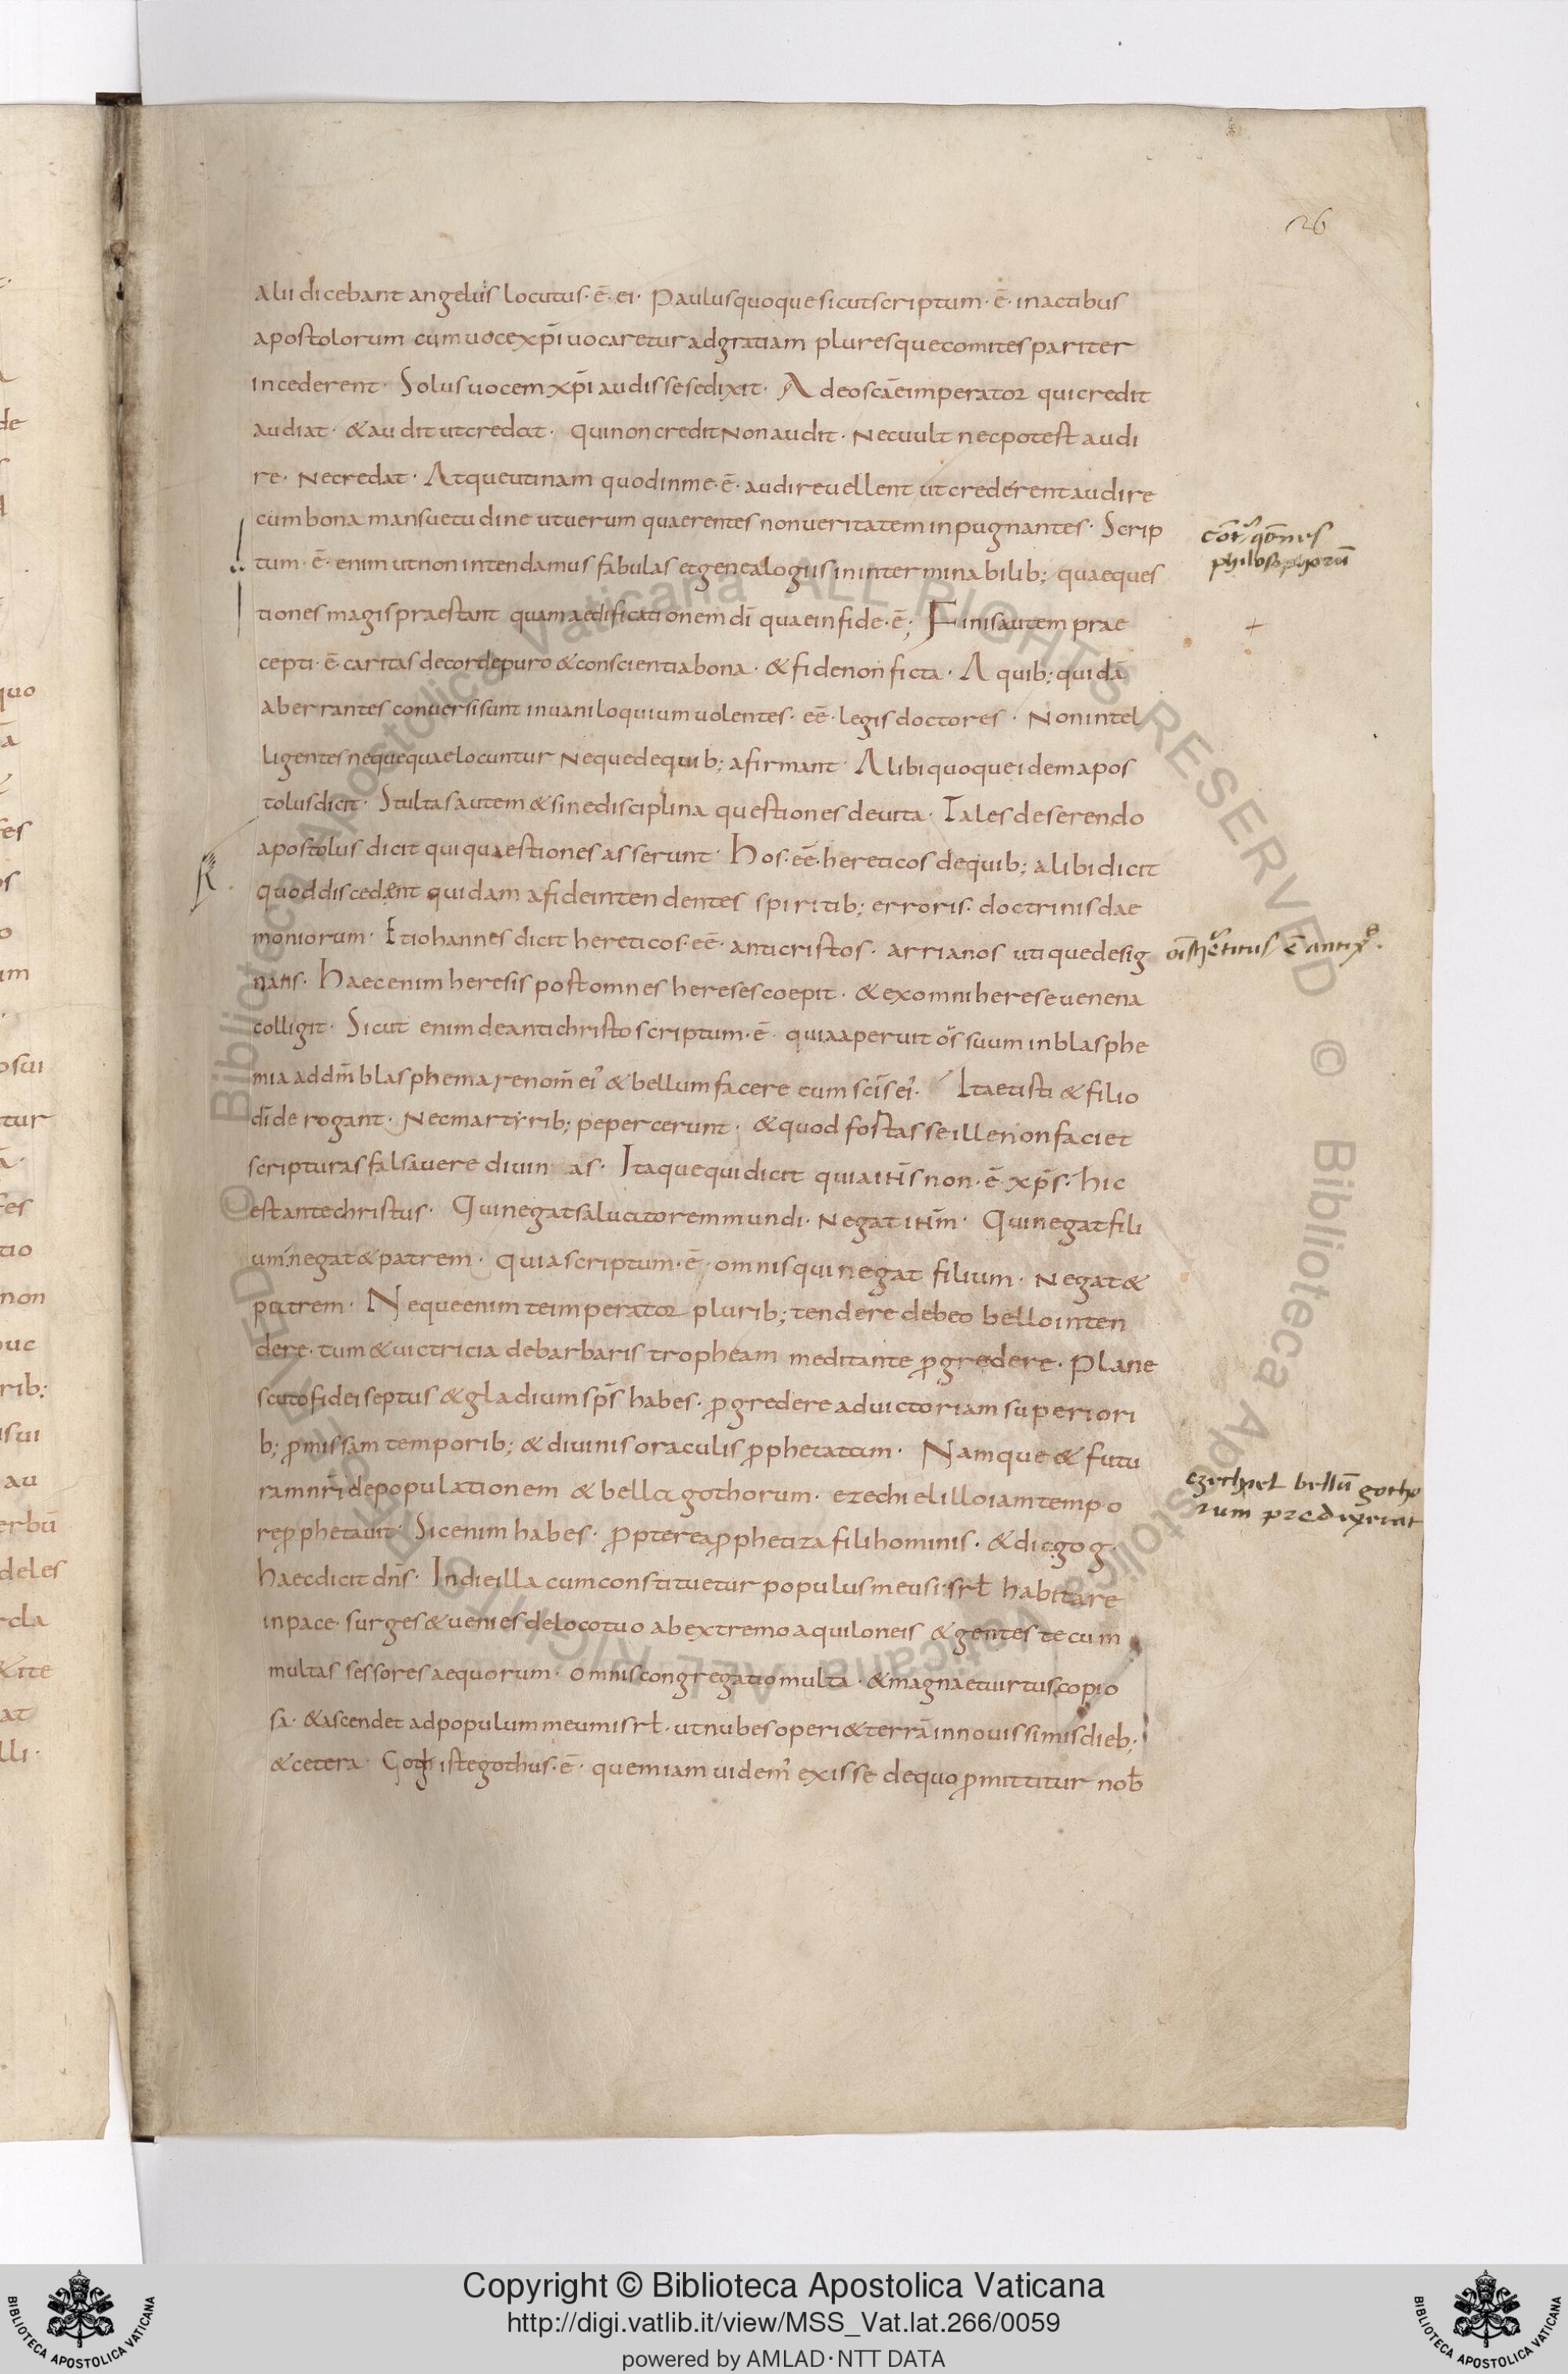 26
alii dicebant angelus locutus · ē · ei · Paulus quoque sicut scriptum · ē · in actibus
apostolorum cum uoce xp̄i uocaretur ad gratiam pluresque comites pariter
incederent · Solus uocem xp̄i audisse se dixit · Adeo scāe imperator qui credit
audiat · & audit ut credat · Qui non credit Non audit · Nec uult nec potest audi
re · Ne credat · Atque utinam quod in me · ē · audire uellent ut crederent audire
cum bona mansuetudine ut uerum quaerentes non ueritatem inpugnantes · Scrip
tum · ē · enim ut non intendamus fabulas et genealogiis in interminabilib; quae ques
tiones magis praestant quam aedificationem dī quae in fide · ē; Finis autem prae
cepti · ē · caritas de corde puro & conscientia bona · & fide non ficta · A quib; quidā
aberrantes conuersi sunt in uaniloquium uolentes · eē · legis doctores · Non intel
ligentes neque quae locuntur Neque de quib; afirmant · Alibi quoque idem apos
tolus dicit · Stultas autem & sine disciplina questiones deuita · Tales deserendo
apostolus dicit qui quaestiones asserunt · Hos · eē · hereticos de quib; alibi dicit
quod discedent quidam a fide intendentes spiritib; erroris · doctrinis dae
moniorum · Et iohannes dicit hereticos · eē · anticristos · arrianos utique desig
nans · Haec enim heresis post omnes hereses coepit · & ex omni herese uenena
colligit · Sicut enim de antichristo scriptum · ē · quia aperuit os suum in blasphe
mia ad dm̄ blasphemare nom̄ ei' & bellum facere cum scīs ei' · Ita et isti & filio
dī derogant · Nec martyrib; pepercerunt · & quod fostasse ille non faciet
scripturas falsauere diuin as · Itaque qui dicit quia ih̄s non · ē · xp̄s · hic
est antechristus · Qui negat saluatorem mundi · Negat ih̄m · Qui negat fili
um negat & patrem · Quia scriptum · ē · omnis qui negat filium · Negat &
patrem · Neque enim te imperator plurib; tendere debeo bello inten
dere · tum & uictricia de barbaris tropheam meditante p̄gredere · Plane
scuto fidei septus & gladium sp̄s habes · p̄gredere ad uictoriam superiori
b; p̄missam temporib; & diuinis oraculis p̄phetatam · Namque & futu
ram nr̄i depopulationem & bella gothorum · ezechiel illo iam tempo
re p̄phetauit · Sic enim habes · p̄pterea p̄phetiza fili hominis · & dic gog
haec dicit dn̄s · In die illa cum constituetur populus meus isrł habitare
in pace · surges & uenies de loco tuo ab extremo aquiloneis & gentes tecum
multas sessores aequorum · omnis congregatio multa · & magna et uirtus copio
sa · & ascendet ad populum meum isrł · ut nubes operi & terrā in nouissimis dieb;
& cetera · Goth iste gothus · ē · quem iam uidem' exisse de quo p̄mittitur nob̄
philosophorū
ezechiel bellū gotho
rum predixerat
Copyright © Biblioteca Apostolica Vaticana
http://digi.vatlib.it/view/MSS_Vat.lat.266/0059
powered by AMLAD·NTT DATA